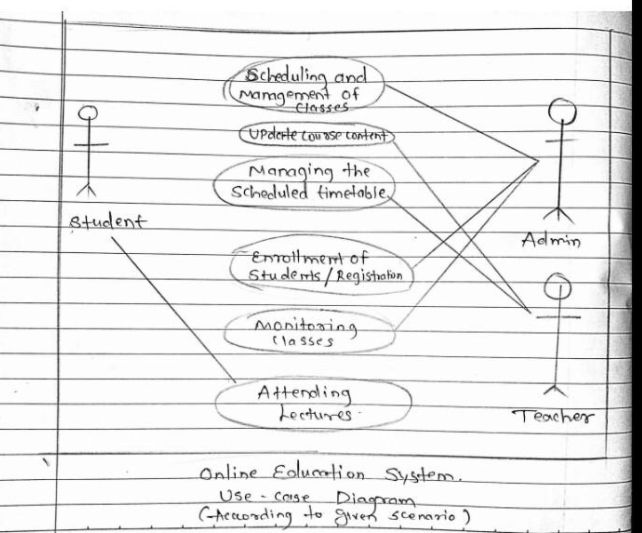 Scheduling and
Management of
Classes
Update course content
Managing the
Scheduled timetable
Student
Admin
Enrollment of
Students / Registration
Monitoring
Classes
Attending
Lectures.
Teacher
Online Education System.
Use-case Diagram
(According to given scenario)